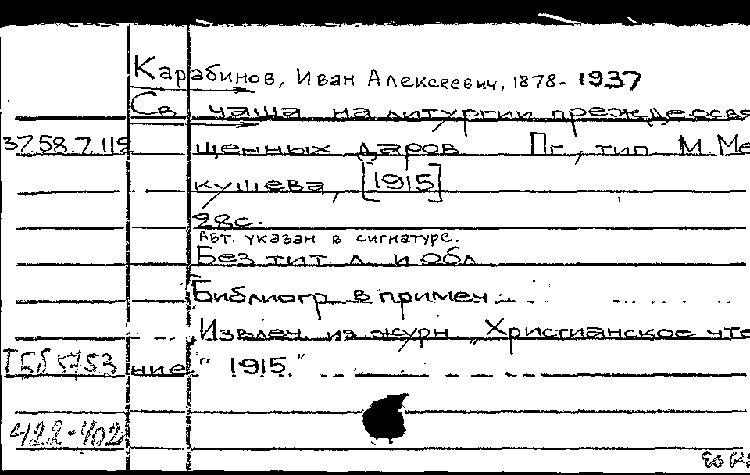 Карабинов, Иван Алексеевич, 1878-1937
Св. чаша на литургии преждеосвя
37.58.7.119 щенных даров Пг., тип. М. Ме
кушева, [1915]
28с.
Авт. указан в сигнатуре.
Без тит. л. и обл.
Библиогр. в примеч.
Извлеч. из журн. „Христианское чте
ние" 1915."
422-402